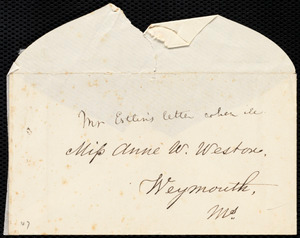 Mr Estlin's letter
Miss Anne W. Weston,
Weymouth,
Ms
47